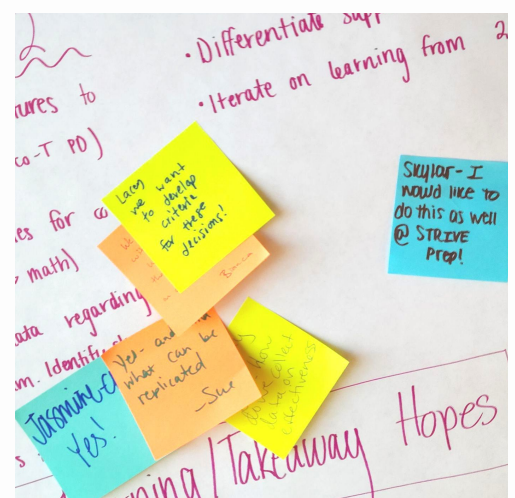 • Differentiate
• Iterate on learning from 2
ures to
co-T PD)
es for
math)
ata regarding
m. Identify
Lacey
we want
to develop
criteria
for these
decisions!
Bianca
Skylar - I
would like to
do this as well
@ STRIVE
Prep!
Yes - and
what can be
replicated
- Sue
Jasmine-
Yes!
how
collect
data on
effectiveness
ning/Takeaway Hopes